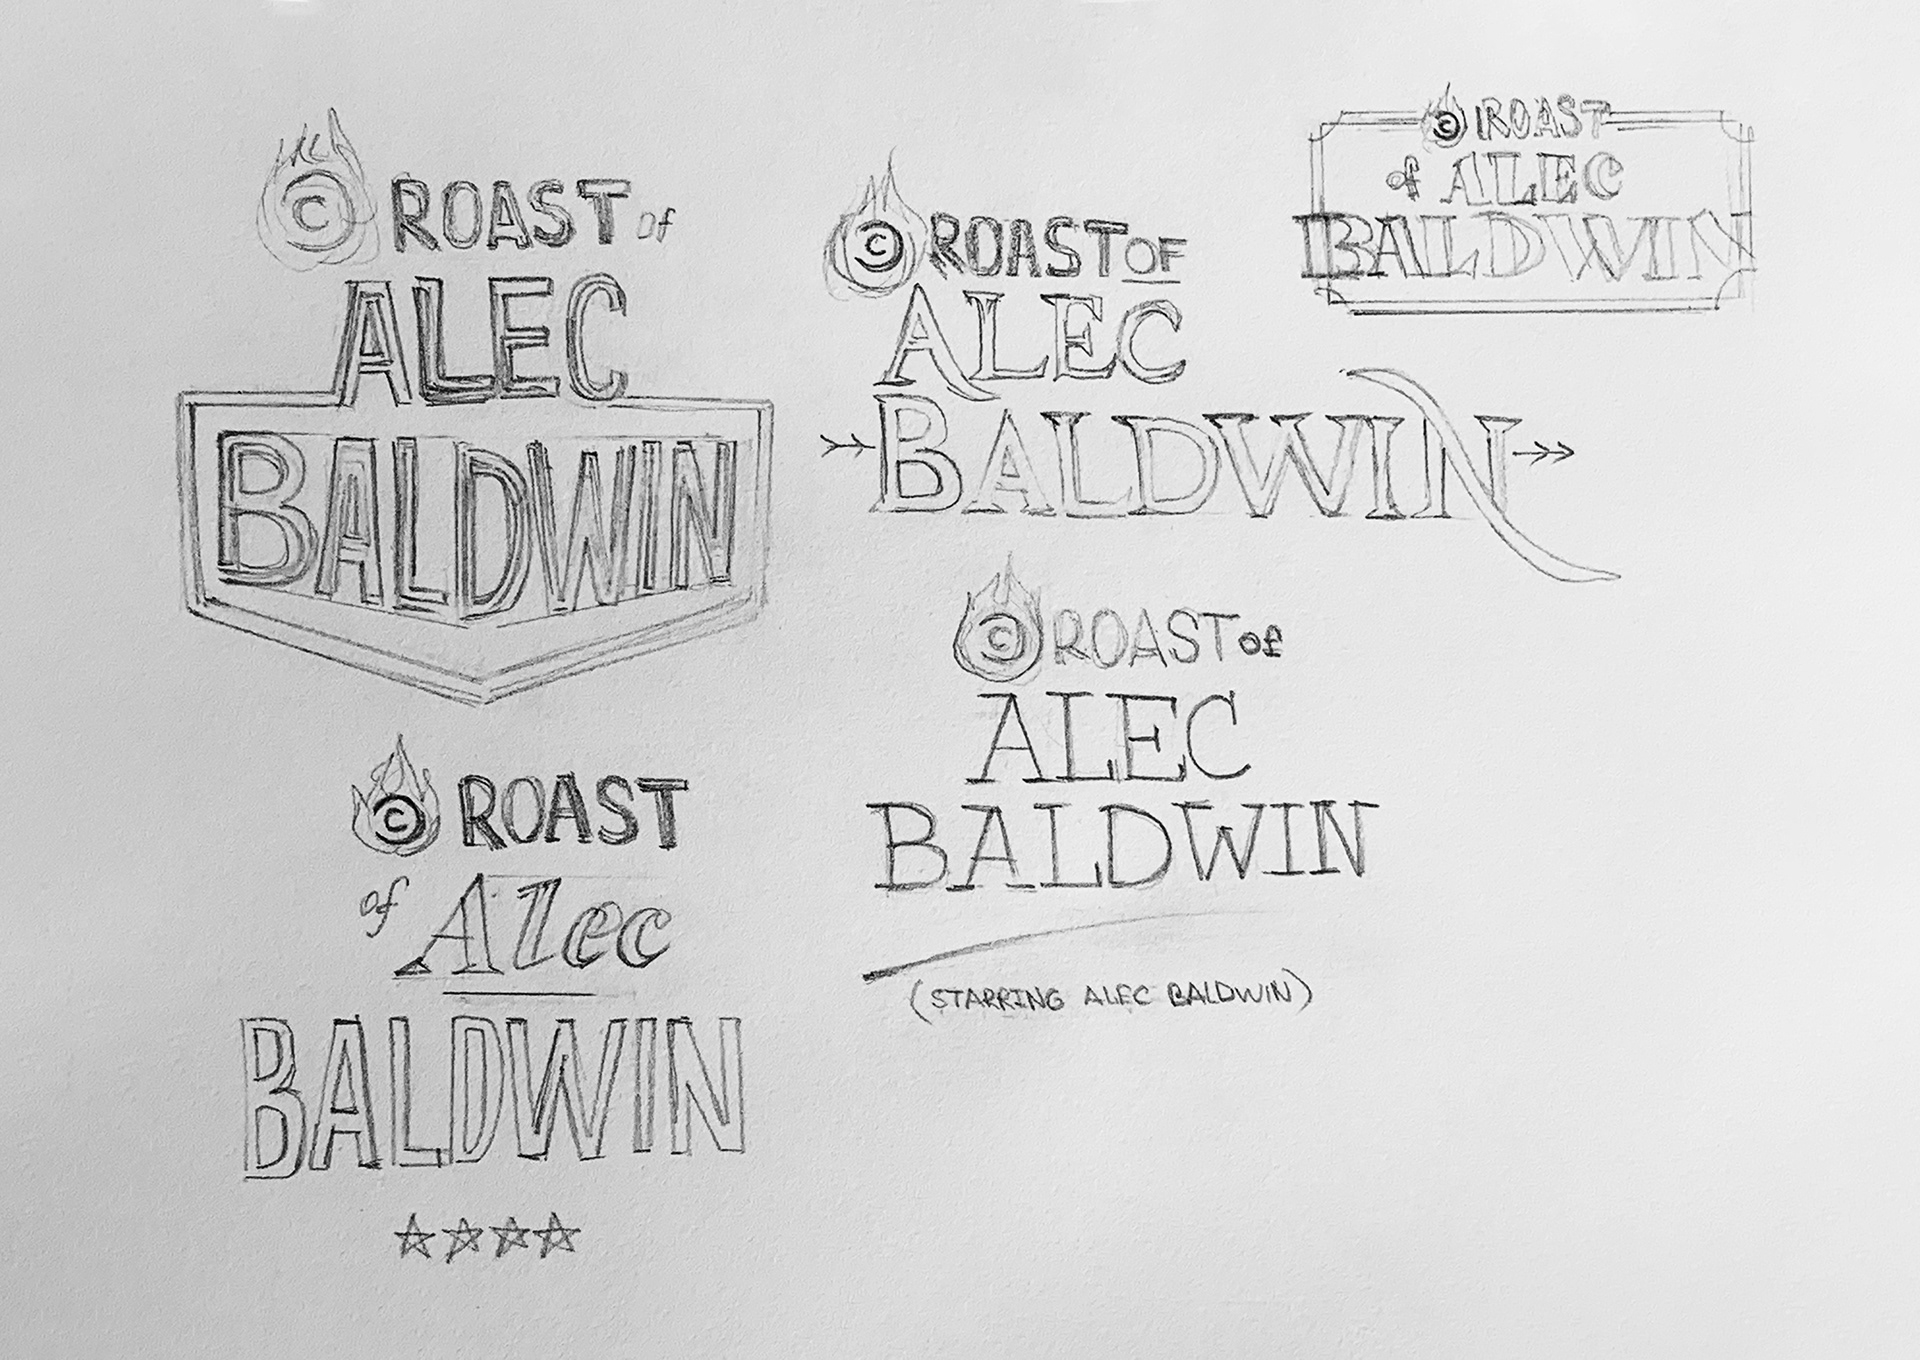 © ROAST of
ALEC
BALDWIN
© ROAST OF
ALEC
BALDWIN
© ROAST
of ALEC
BALDWIN
© ROAST
of Alec
BALDWIN
© ROAST of
ALEC
BALDWIN
(STARRING ALEC BALDWIN)